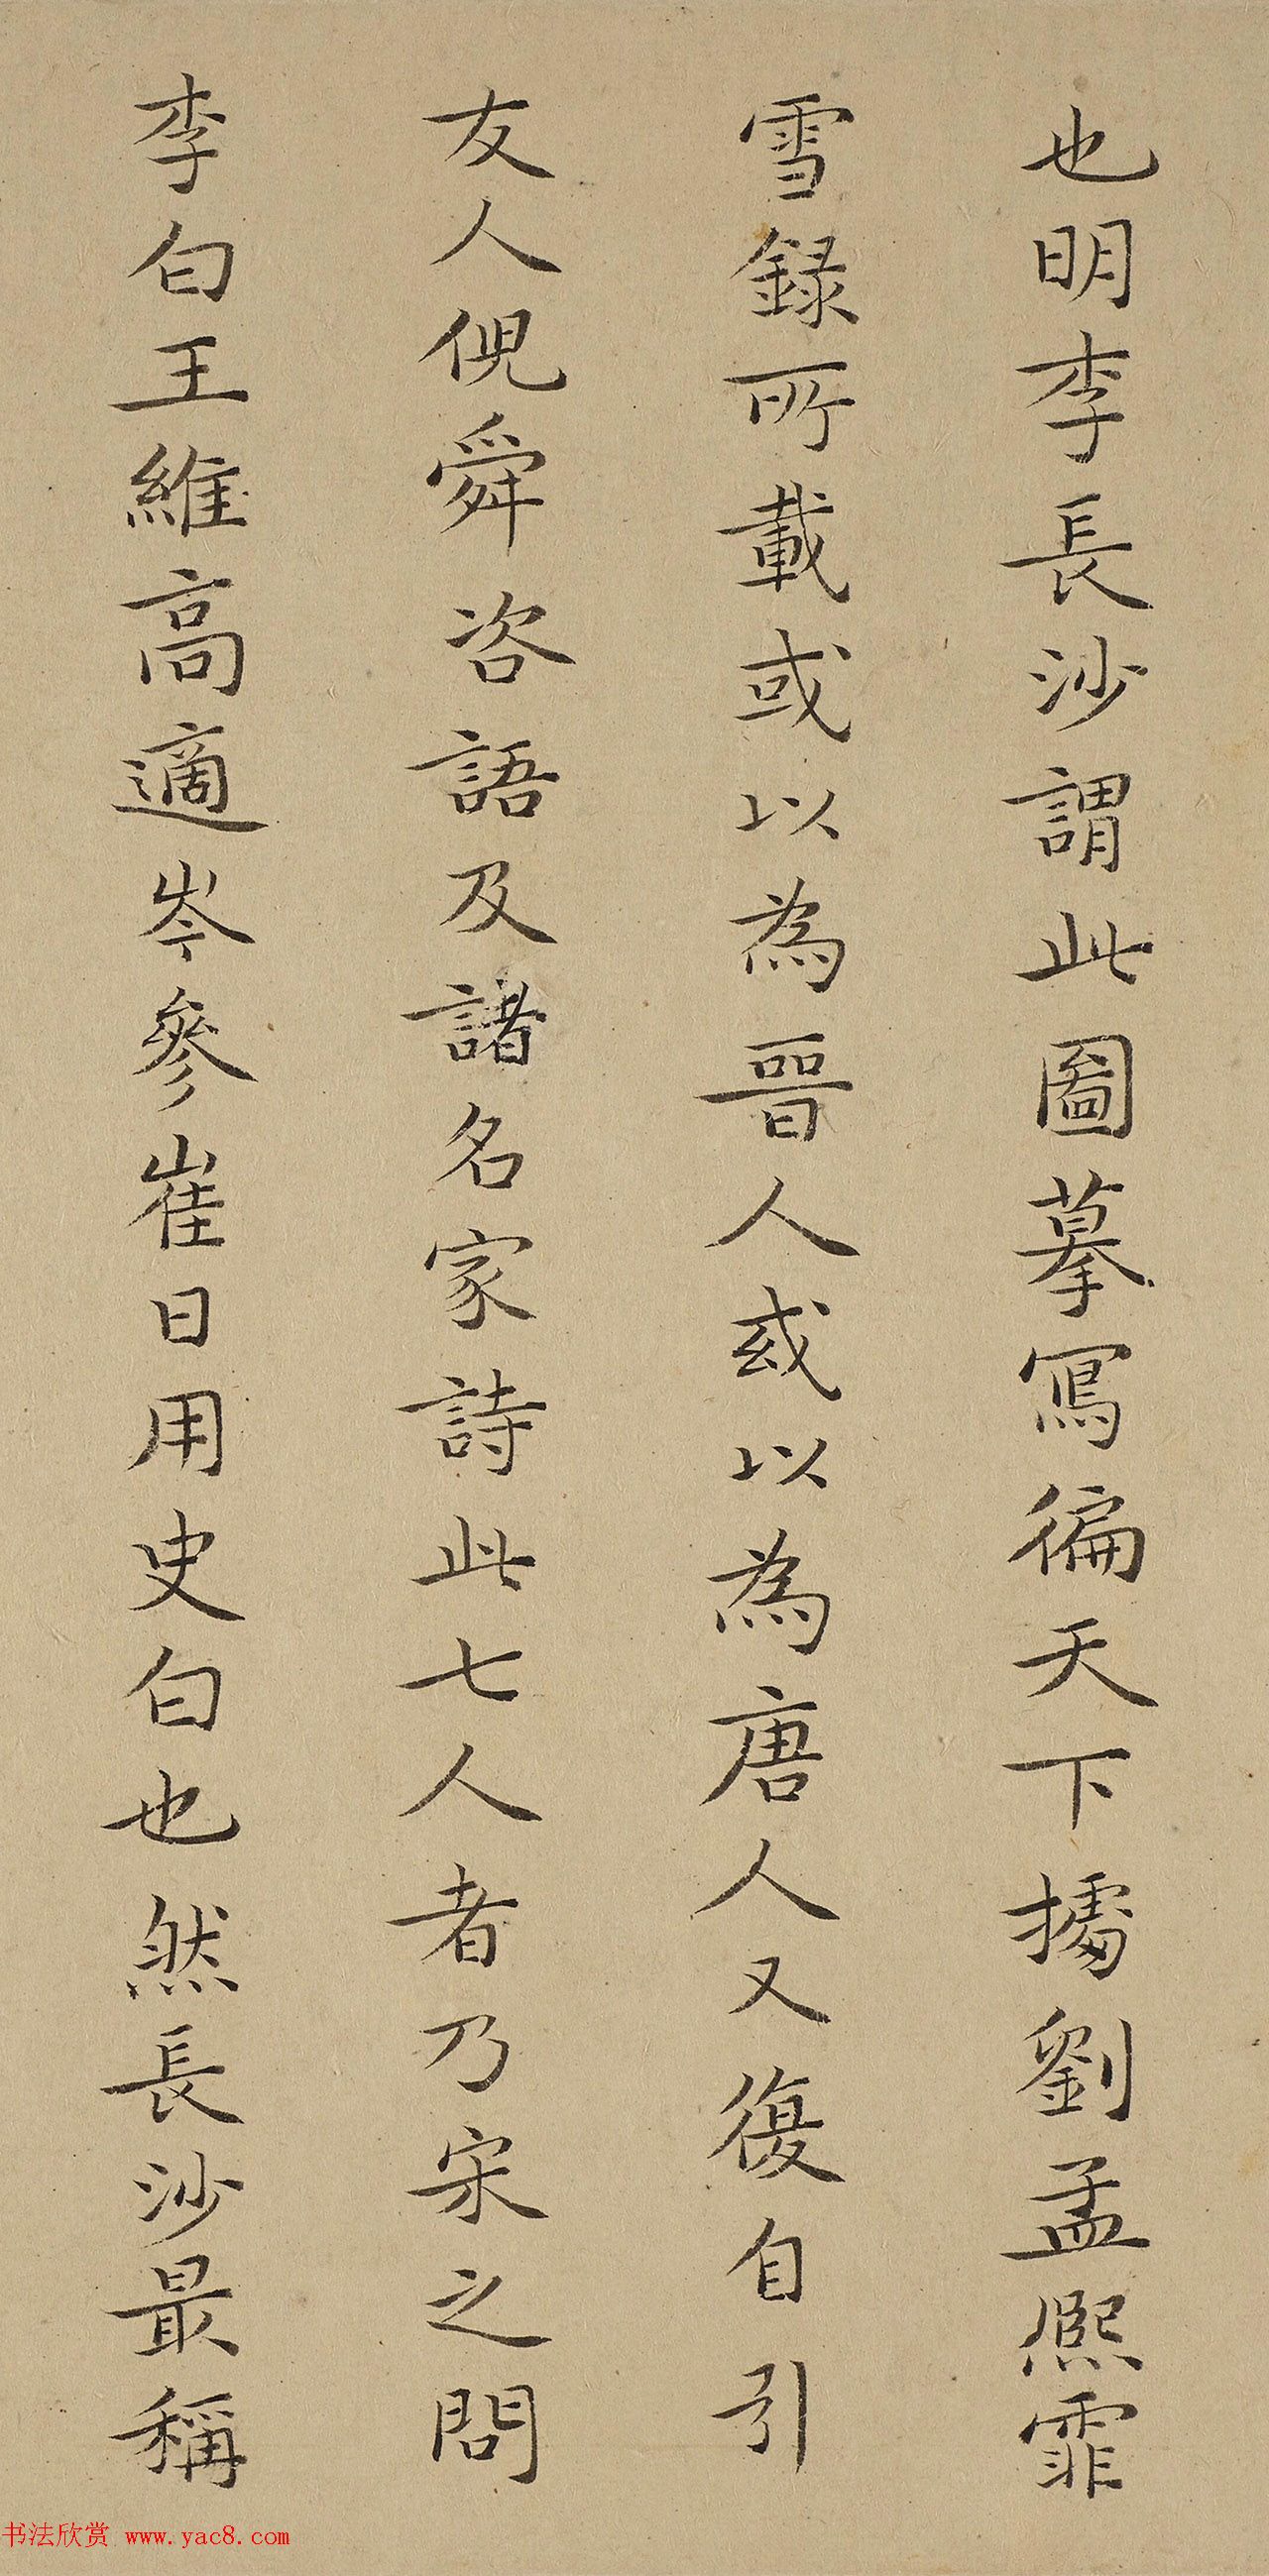 也明李長沙謂此圖摹寫徧天下據劉孟熙霏
雪錄所載或以為晉人或以為唐人又復自引
友人倪舜咨語及諸名家詩此七人者乃宋之問
李白王維高適岑參崔日用史白也然長沙最稱
书法欣赏 www.yac8.com